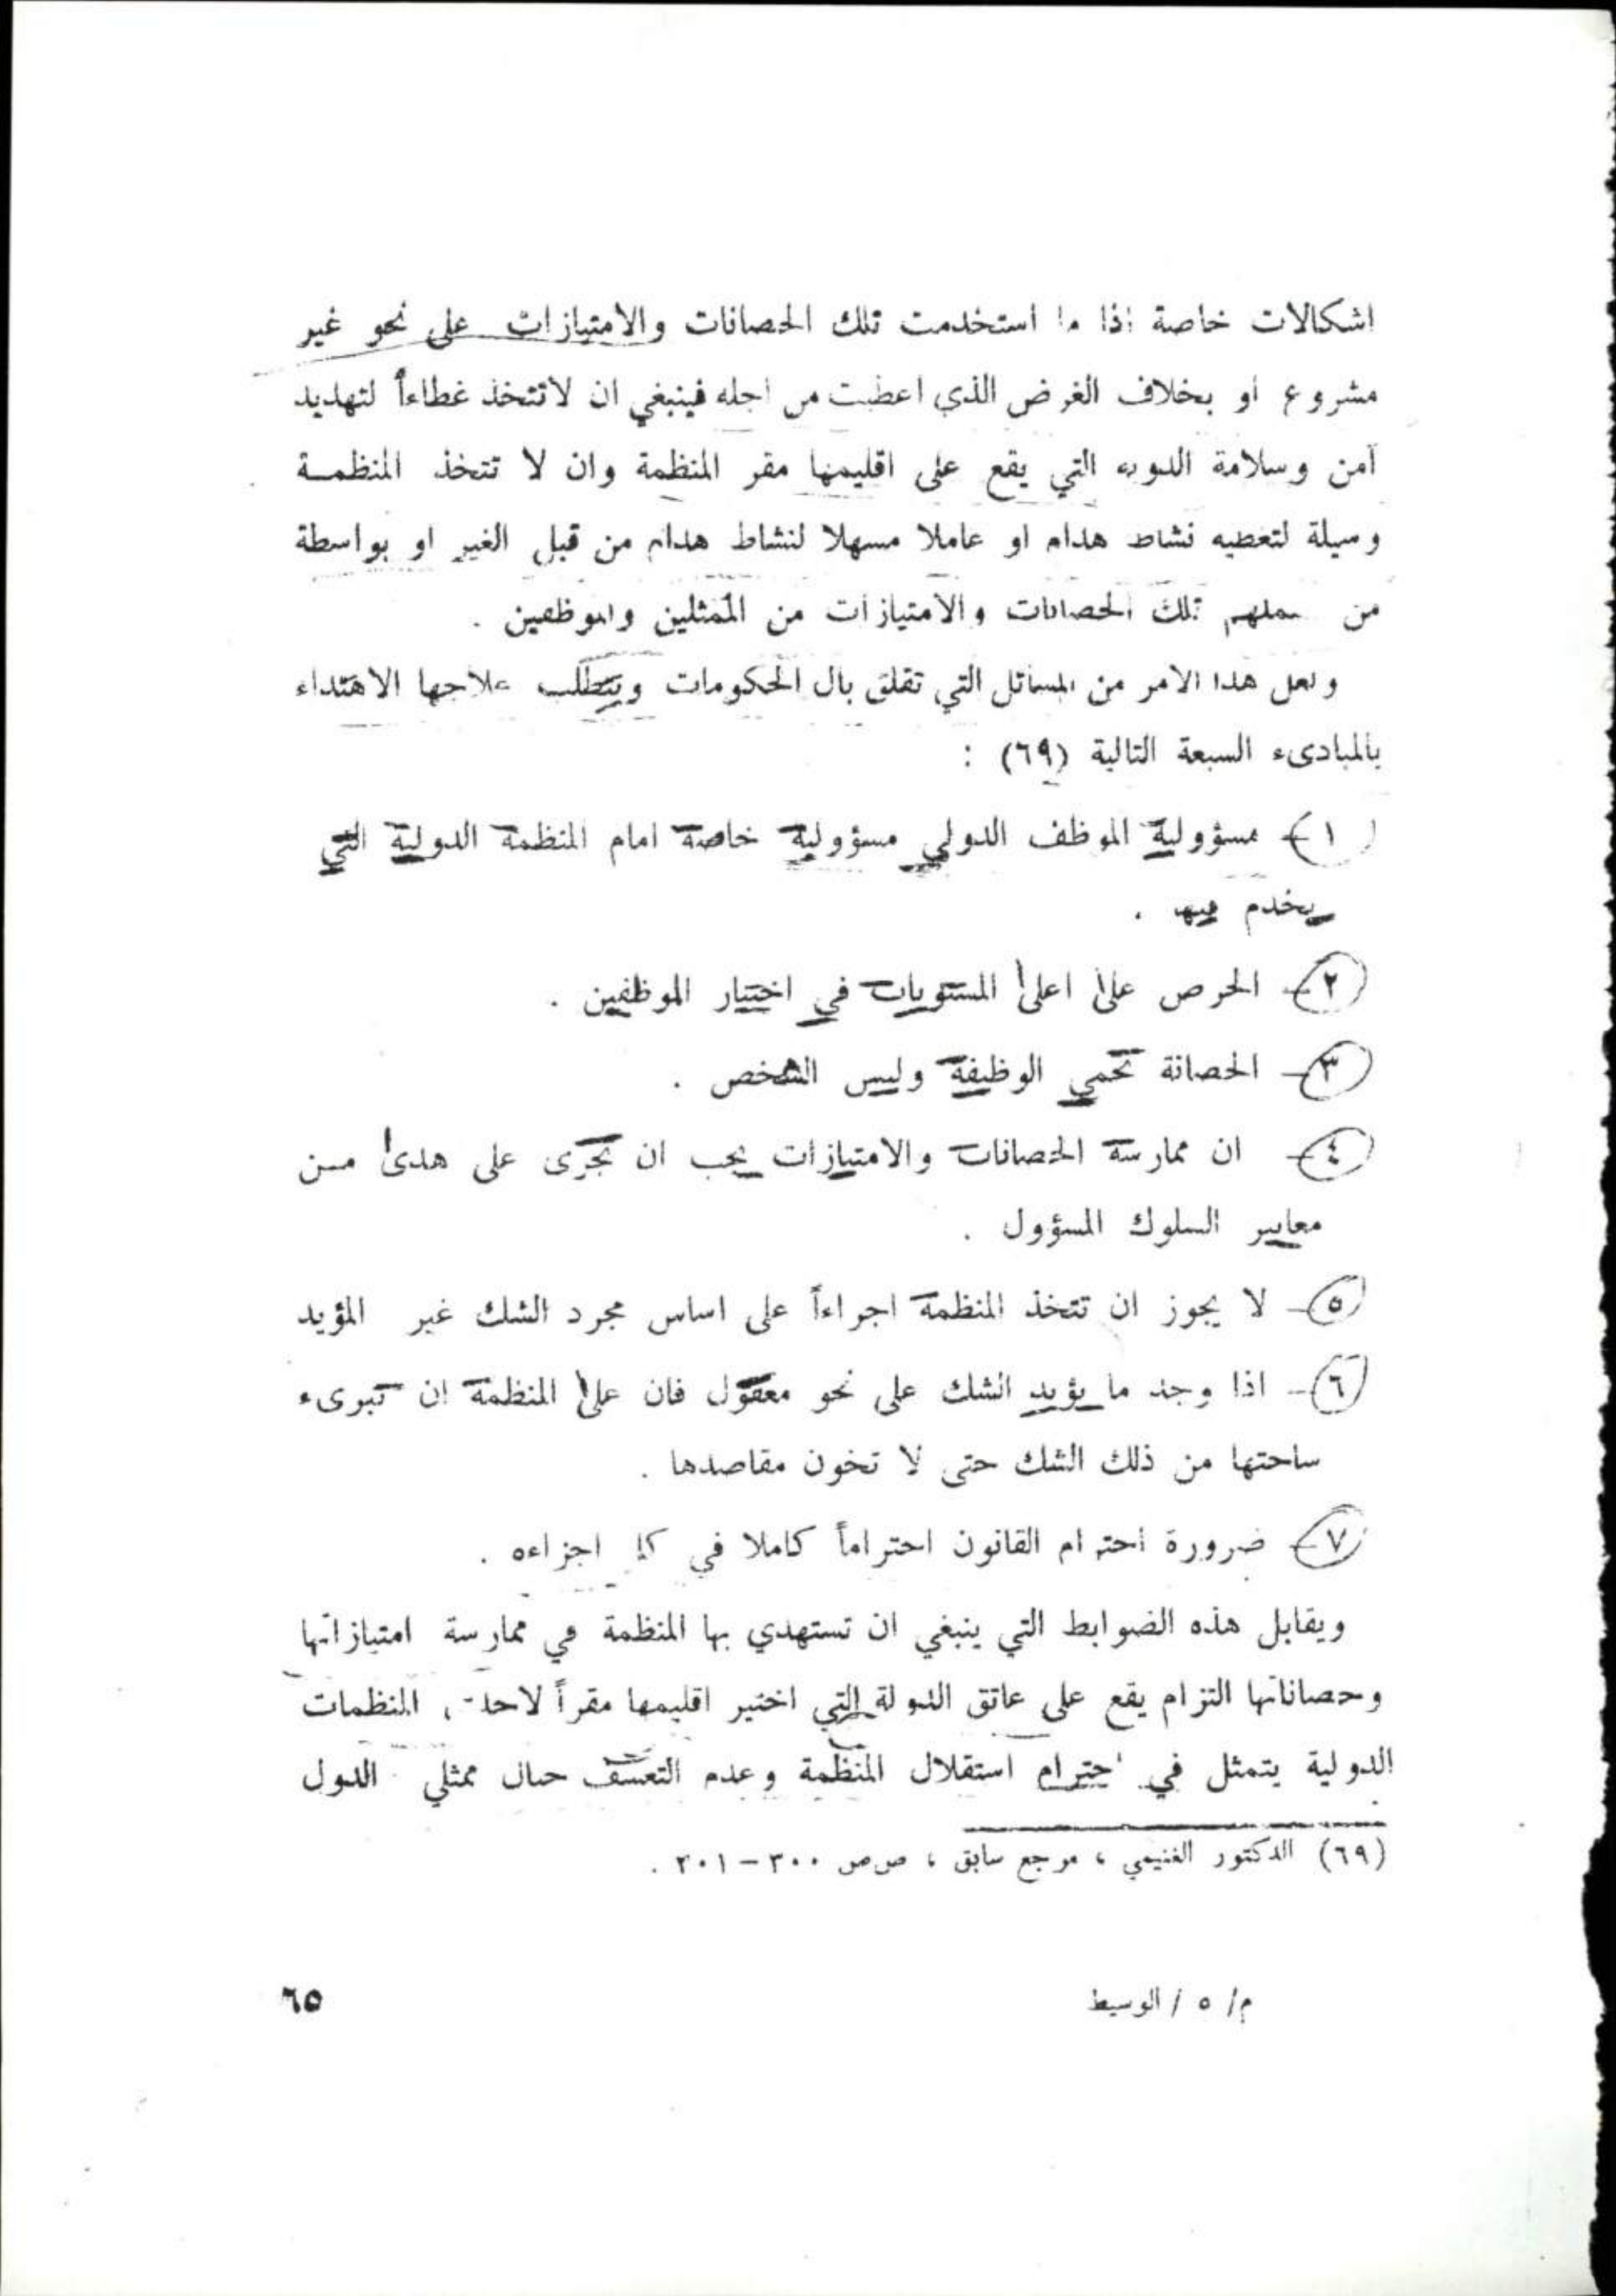 اشكالات خاصة اذا ما استخدمت تلك الحصانات والامتيازات على نحو غير
مشروع او بخلاف الغرض الذي اعطيت من اجله فينبغي ان لاتتخذ غطاءاً لتهديد
أمن وسلامة الدولة التي يقع على اقليمها مقر المنظمة وان لا تتخذ المنظمــة
وسيلة لتغطيه نشاط هدام او عاملا مسهلا لنشاط هدام من قبل الغير او بواسطة
من تلك الحصانات والامتيازات من الممثلين والموظفين .
ولعل هذا الامر من المسائل التي تقلق بال الحكومات ويتطلب علاجها الاهتداء
بالمبادىء السبعة التالية (٦٩) :
(١ – مسؤولية الموظف الدولي مسؤولية خاصة امام المنظمة الدولية التي
يخدم فيها .
٢ – الحرص على اعلى المستويات في اختيار الموظفين .
٣ – الحصانة تحمي الوظيفة وليس الشخص .
٤ – ان ممارسة الحصانات والامتيازات يجب ان تجرى على هدى مــن
معايير السلوك المسؤول .
٥ – لا يجوز ان تتخذ المنظمة اجراءاً على اساس مجرد الشك غير المؤيد
٦ – اذا وجد ما يؤيد الشك على نحو معقول فان على المنظمة ان تبرىء
ساحتها من ذلك الشك حتى لا تخون مقاصدها .
٧ – ضرورة احترام القانون احتراماً كاملا في كل اجزاءه .
ويقابل هذه الضوابط التي ينبغي ان تستهدي بها المنظمة في ممارسة امتيازاتها
وحصاناتها التزام يقع على عاتق الدولة التي اختير اقليمها مقراً المنظمات
الدولية يتمثل في احترام استقلال المنظمة وعدم التعسف حيال ممثلي الدول
(٦٩) الدكتور الغنيمي ، مرجع سابق ، ص ص ٣٠٠–٣٠١ .
م/ ٥ / الوسيط
٦٥